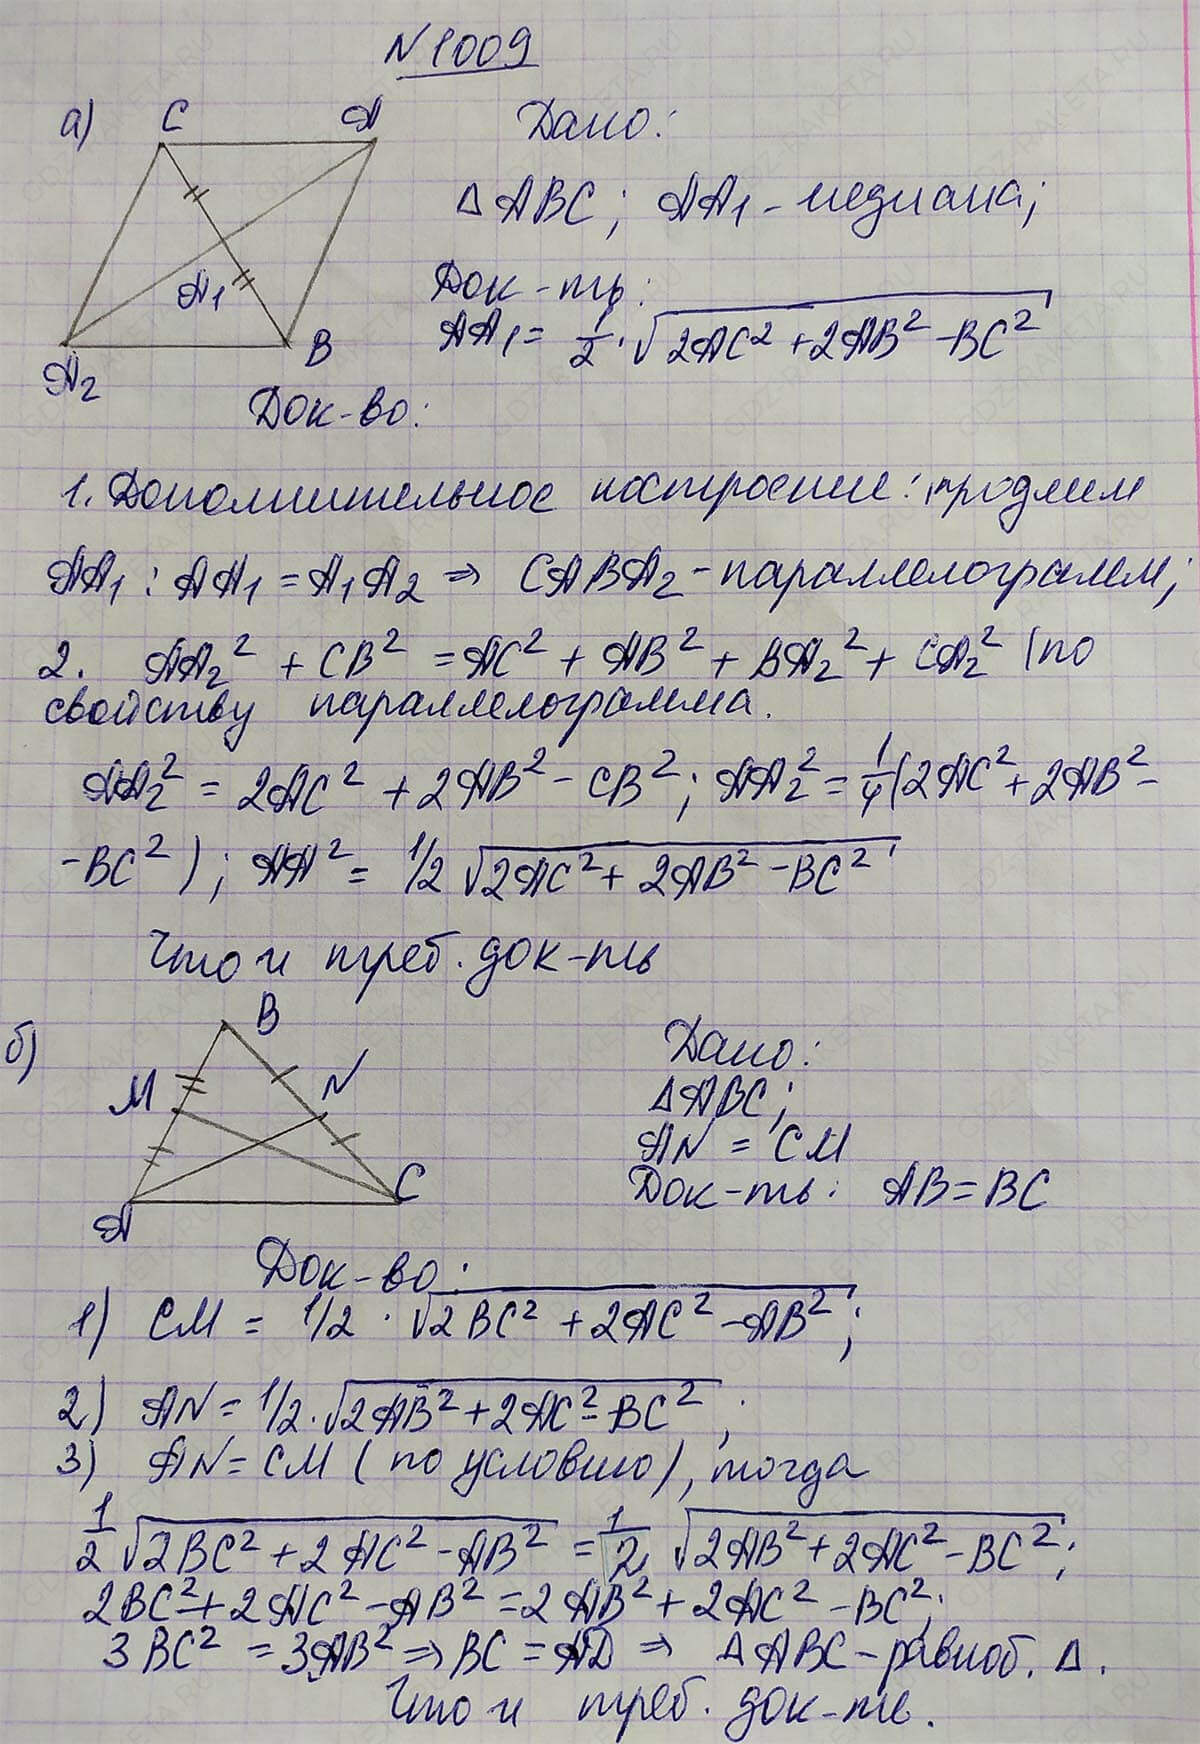 N1009
а)
C A
A1
A2 B
Дано:
Δ ABC; AA1 - медиана;
Док-ть:
AA1 = 1/2 · √(2AC² + 2AB² - BC²)
Док-во:
1. Дополнительное построение: продлим
AA1 : AA1 = A1A2 ⇒ CABA2 - параллелограмм;
2. AA2² + CB² = AC² + AB² + BA2² + CA2² (по
свойству параллелограмма.
AA2² = 2AC² + 2AB² - CB²; AA2² = 1/4 (2AC² + 2AB² -
- BC²); AA² = 1/2 √(2AC² + 2AB² - BC²)
Что и треб. док-ть
б)
B
M N
A C
Дано:
Δ ABC;
AN = CM
Док-ть: AB = BC
Док-во:
1) CM = 1/2 · √(2BC² + 2AC² - AB²);
2) AN = 1/2 · √(2AB² + 2AC² - BC²);
3) AN = CM (по условию), тогда
1/2 √(2BC² + 2AC² - AB²) = 1/2 √(2AB² + 2AC² - BC²);
2BC² + 2AC² - AB² = 2AB² + 2AC² - BC²;
3BC² = 3AB² ⇒ BC = AD ⇒ Δ ABC - равноб. Δ.
Что и треб. док-ть.